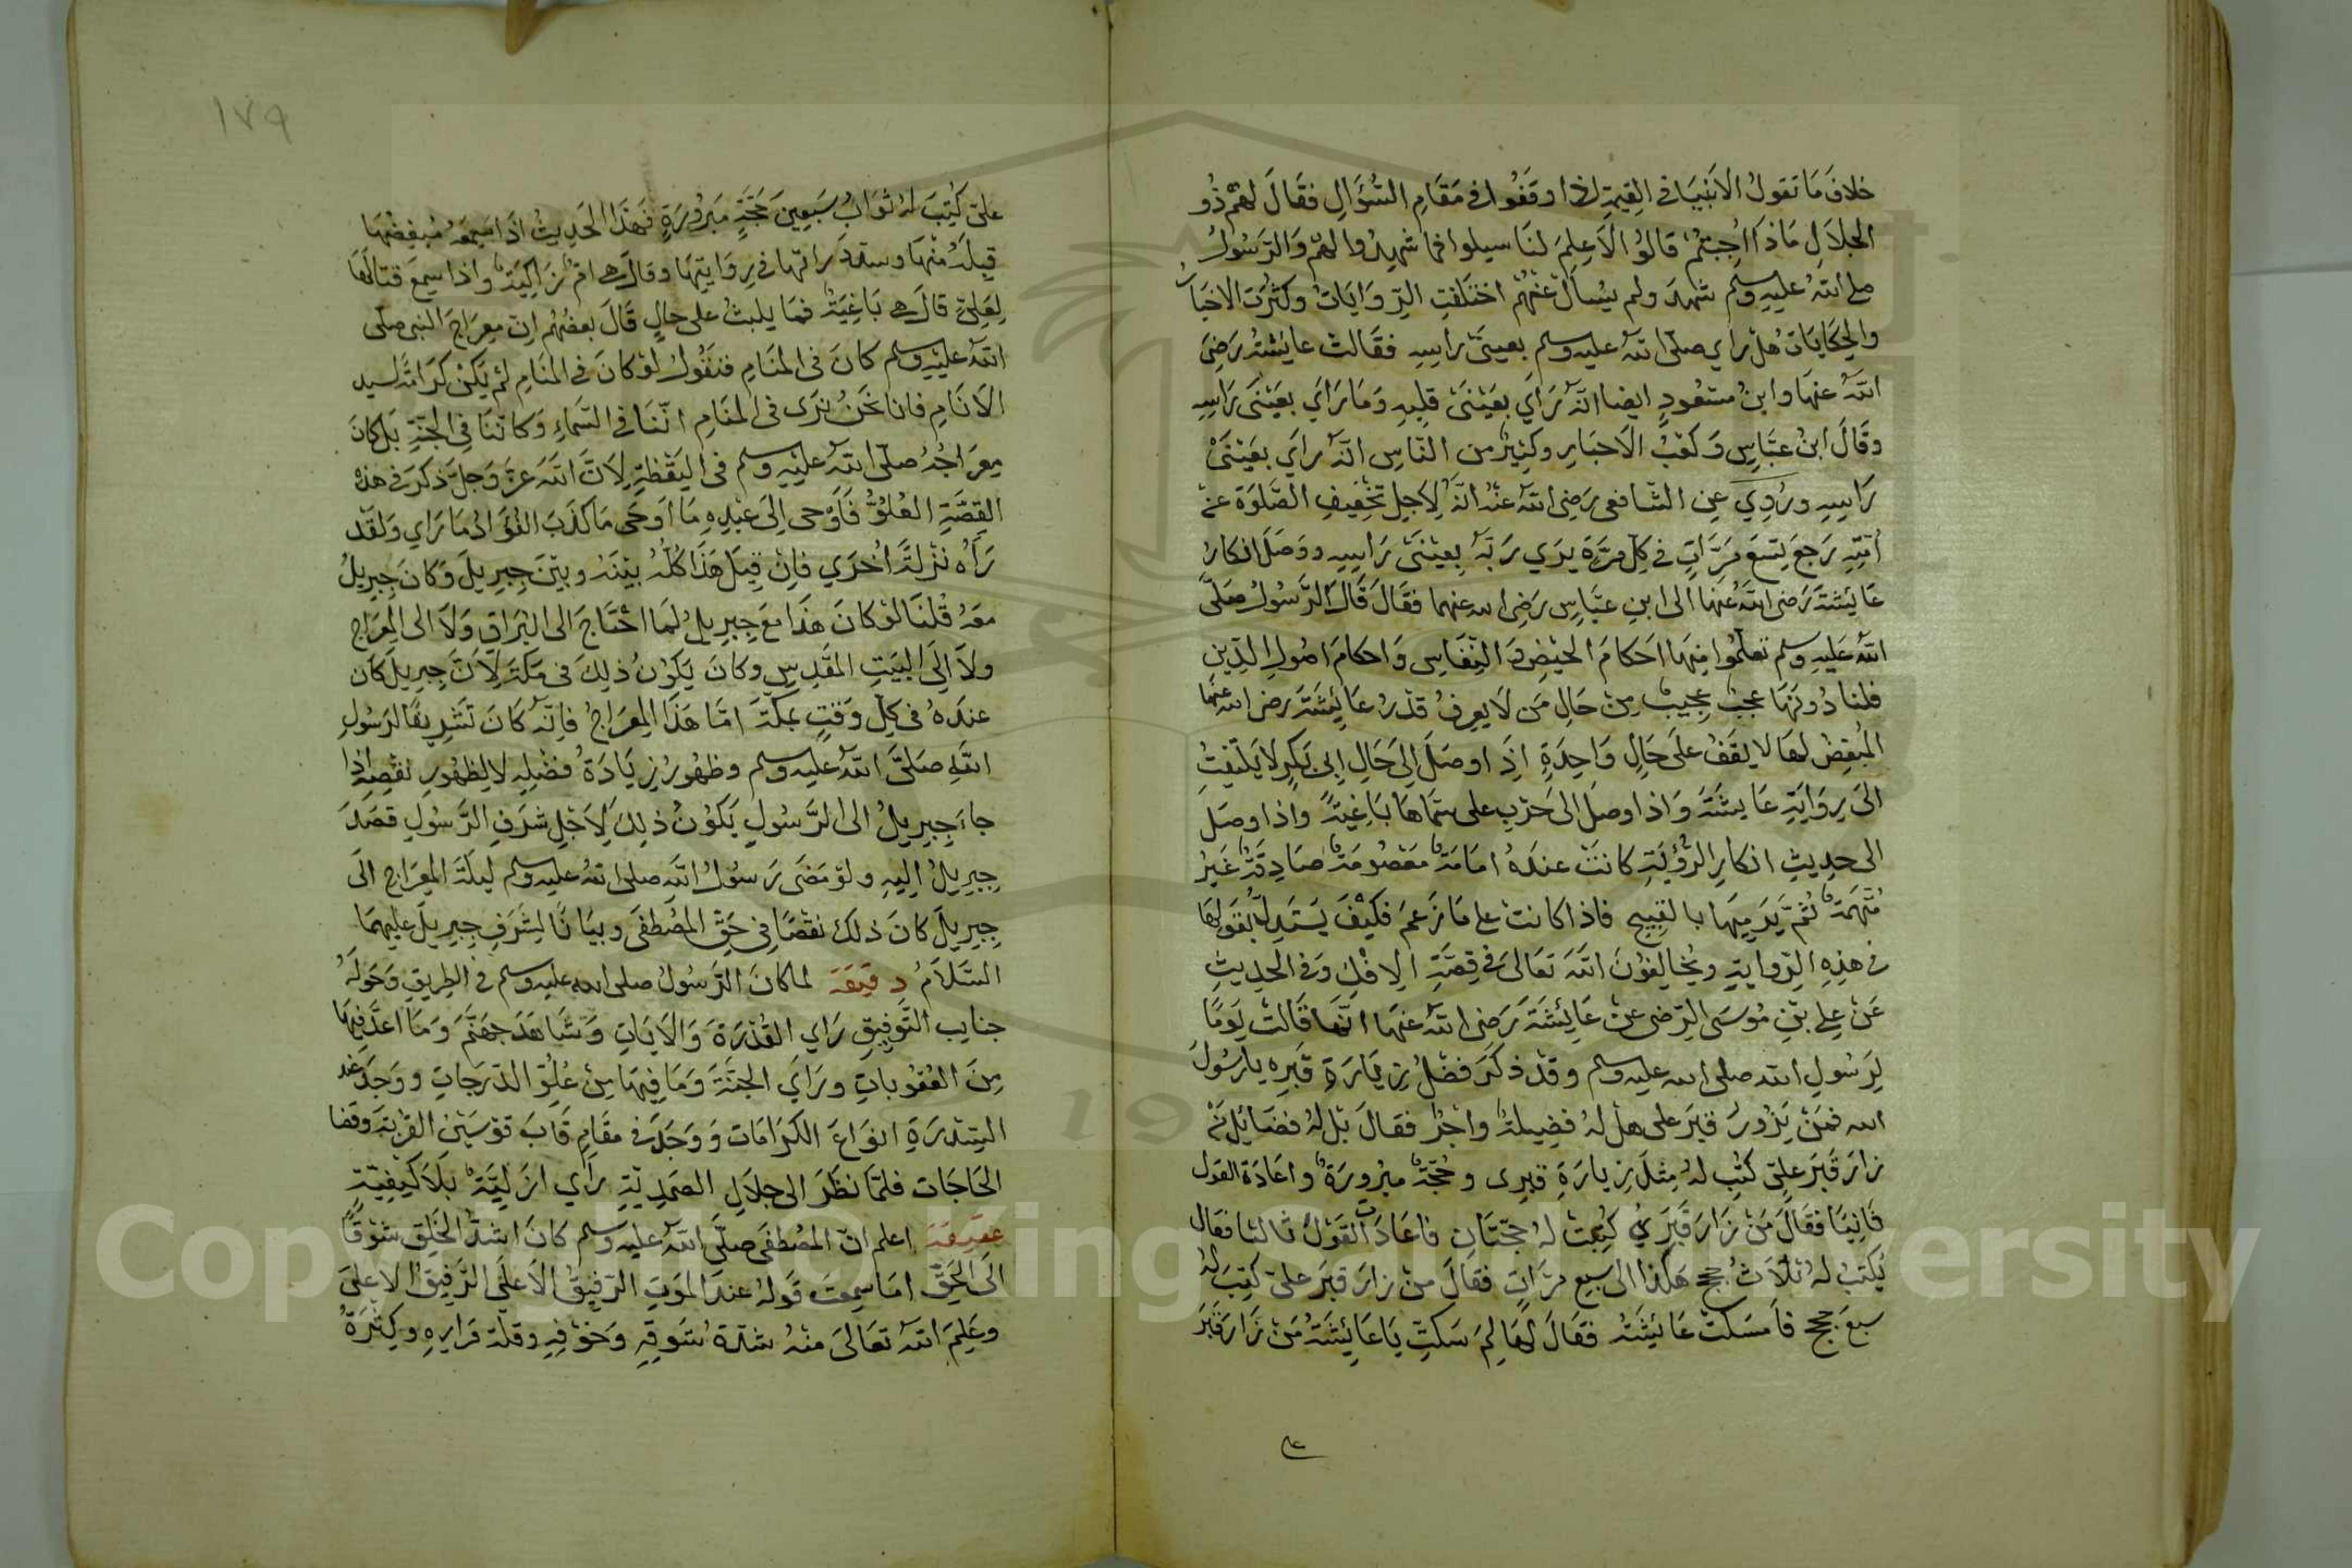 خلافَ مَا تقولُ الاَنبيَا في القِيمةِ اذا وقفُوا في مَقَامِ السُّؤَالِ فقَالَ لهُم ذُو
الجلاَلِ مَاذَا اُجِبتمْ قَالوُا لاَ عِلمَ لنَا سيلوا فما شهِدُوا لهم وَالرَّسُولُ
صلى اللهُ عليهِ وسلم شهدَ ولم يسأل عنهُم اختلَفتِ الرِّوَايَاتُ وكثُرَت الاخبَارُ
والحِكَايَاتُ هَل رَاي صلّى الله عليه وسلم بعينَى رَاسِه فقَالت عايشتُه رَضِيَ
اللهُ عنهَا وابنُ مسعُودٍ ايضا انّهُ رَاي بعَينَىْ قلبِهِ وَمَا رَاي بعَينَىْ رَاسِهِ
وقَالَ ابنُ عبَّاسٍ وَكعْبُ الاَحبَارِ وكثِيرٌ من النّاسِ انّهُ راَي بعَينَىْ
رَاسِهِ ورُوِيَ عن الشافعى رَضِى اللهُ عنْهُ انّهُ لِاَجلِ تخفِيفِ الصَّلوٰة عنْ
اُمَّتِهِ رَجعَ تِسعَ مَرَّاتٍ في كلِّ مرَّةٍ يرَي رَبَّهُ بعينَىْ رَاسِهِ ووَصَلَ انكارُ
عَايشَتَه رَضى اللهُ عنهَا الى ابنِ عبَّاسٍ رَضِى الله عنهما فقَالَ قَالَ الرَّسُولُ صَلّى
الله عَليهِ وسلم تعلّمُوا مِنهَا احكامَ الحَيضِ وَ النِّفَاسِ وَاحكامَ اصُولِ الدِّينِ
قلنا دُونَهَا عجبٌ عجيبٌ مِنْ حَالِ مَن لَا يعرفُ قدْرَ عَائشَتَه رضى الله عنهَا
المُبغِضُ لهَا لا يقَفُ علَى حَالٍ وَاحِدَةٍ اِذَا وصَلَ اِلى حَالِ ابِى بَكرٍ لاَ يَلتفِتُ
الىَ رِوَايَةِ عَايشَتَه وَاذا وصَلَ الى حَرْبِ على سَمَّاهَا بَاغِيَةً واذا وصَل
الى حدِيثِ انكارِ الرُّؤيَةِ كانتْ عندَهُ امَامَةً مَعصُومَةً صَادِقَةً غَيرُ
مُتَّهمَةٍ ثمَّ يَرمِيهَا بالقبِيح فاذا كانت على مَا زَعمَ فكيْفَ يَستدِلُّ بقولِهَا
في هذِهِ الرِّوايَةِ ويُخالِفوُنَ اللهَ تعَالىَ في قِصَّةِ الاِفكِ وَفي الحدِيثِ
عَنْ علِى بْنِ مُوسَى الرِّضى عنْ عَايِئشَتَه رَضِى اللهُ عنهَا انَّهَا قَالتْ يَومًا
لِرَسُولِ الله صلى الله عليه وسلم وقدْ ذكرَ فضْلُ زِيَارَةِ قبرِهِ يا رَسُولَ
الله فمَنْ يَزُورُ قبرَ على هلْ لهُ فضِيلةٌ واجْرٌ فقَالَ بَل لهُ فضَائِل مَنْ
زارَ قَبرَ علِىّ كتِبَ لهُ مِثلَ زِيارَةِ قبرِى وحجّةٌ مبرُورَةٌ واعَادَة القول
ثَانِيَا فقَالَ مَنْ زَارَ قَبرَيُ كُتِبتْ لهُ حجّتَانِ فاعَادَت القَولَ ثالثا فقال
يُكتبُ لهُ ثلَاَثُ حججٍ هَكذا الى سبعِ مرَّاتٍ فقَالَ منْ زارَ قبرَ علىّ كتِبَ لهُ
سبعَ حججٍ فاَمسَكتْ عَايئشَتُه فقَالَ لهَا لِمَ سَكتِّ يَا عَايِئشَتهُ مَنْ زَارَ قَبْرَ
على
١٧٩
علىّ كُتِبَ لهُ ثوَابُ سَبعِينَ حَجّةٍ مَبرُورَةٍ فهَذَا الحَدِيثُ اذَا سَمِعَهُ مُبغِضُهَا
قبِلَهُ منْهَا وسدّدَ رَاتهَا في رِوَايتِهَا وقالَ هى امٌّ زَاكِيَةٌ واذا سمِعَ قتالَهَا
لِعَلِىّ قالَ هى بَاغِيَةٌ فمَا يلبثُ على حَالٍ قَالَ بعضُهُم اِنّ مِعرَاجَ النبى صلّى
الله علَيْهِ وسلم كانَ في المنَامِ فنَقُولُ لوْ كانَ في المنَامِ لمْ يَكنْ كرَامَةً لسيد
الاَنَامِ فانا نحَنُ نرَى في المنَامِ انّنَا في السَّمَاءِ وَكانّنَا فِى الجنّةِ بَل كانَ
مِعرَاجُهُ صلّى الله عليْهِ وسلم في اليَقْظةِ لِاَنَّ اللهَ عزَّ وَجلّ ذكرَ في هذهْ
القِصَّةِ العُلُوَّ فَاَوْحى اِلىَ عبْدِهِ مَا اَوحَى مَا كذَبَ الفُؤَادُ مَا رَاي وَلقَدْ
رَآهُ نزْلةً اُخرَي فاِنْ قِيلَ هَذَا كلُّهُ بيْنَهُ وبيْنَ جِبرِيلَ وَكانَ جِبرِيلُ
معَهُ قْلنَا لوْ كانَ هَذَا معَ جِبرِيلَ لمَا احْتَاجَ الى البُرَاقِ وَلاَ الى المِعرَاجِ
ولاَ اِلَى البَيتِ المقَدِسِ وكانَ يَكوُنُ ذلِكَ في مَكّةَ لِاَنّ جِبرِيلَ كان
عندَهُ في كلّ وَقتٍ بمكّةَ امّا هَذَا المِعرَاجُ فاِنّهُ كَانَ تَشرِيفًا لرَسُولِ
اللهِ صَلىَّ اللهُ عليه وسلم وظهُورُ زِيَادَةُ فضْلِهِ لا لِظهُورِ نقْصِهِ اذا
جاءَ جِبرِيلُ الى الرَّسُولِ يَكوُنُ ذلِكَ لِاَجْلِ شرَفِ الرَّسُولِ قصَدَ
جِبرِيلُ اِليهِ ولوْ مَضَى رَسُولُ الله صلى اللهُ عليه وسلم ليلَةَ المِعرَاجِ الَى
جِبرِيلَ كانَ ذلكَ نقْصًا فِى حَقّ المصطفَى وبيَانًا لِشَرَفِ جِبرِيلَ عليهمَا
السَّلاَمُ دقيقَة لما كانَ الرَّسُولُ صلى الله عليه وسلم في الطرِيقِ وَحَولَهُ
جنايب التَّوفِيقِ رَاي القُدْرَةَ وَالاَيَاتِ وَشَاهَدَ جهَنّمَ وَمَا اعدَّ فِيهَا
مِنَ العُقوُباتِ ورَايَ الجنّةَ وَمَا فِيهَا مِنْ عُلوِّ الدّرَجاتِ ووَجدَ عند
السِّدْرَةِ انوَاعَ الكرَامَات وَوَجدَ في مقَامِ قَابَ قوْسَيْنِ القُربَة وقضا
الحَاجَات فلمّا نظَرَ الى جلاَلِ الصَمَدِيّةِ رَاي ازَليَّةً بَلاَ كيْفِيّةٍ
حقِيقَة اعلم انّ المُصْطفَى صلّى اللهُ عليه وسلم كانَ اشدَّ الخَلقِ شوْقًا
الَى الحَقِّ امَا سمِعتَ قَولهُ عندَ الموَتِ الرّفِيقُ الاَعلَى الرَّفِيقُ الاعلىَ
وعَلِمَ اللهُ تعَالىَ منْهُ شدّةَ شَوقِهِ وَخوْفِهِ وقلّة قرَارِهِ وكِثرَةُ